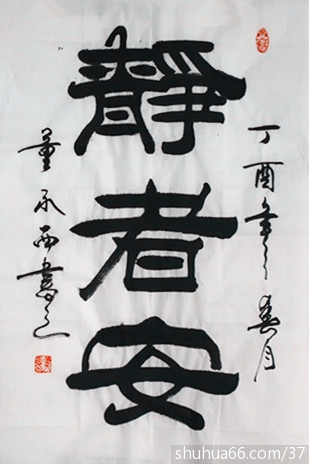 丁酉年春月
靜者安
董西書之
shuhua66.com/37